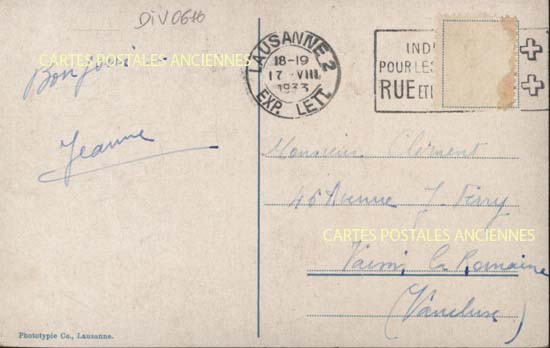 DIV0676
CARTES POSTALES ANCIENNES
Bonjour
Jeanne
LAUSANNE 2
18-19
17. VIII
1933
EXP. LETT.
IND
POUR LES
RUE ET
Monsieur Clément
45 Avenue J. Ferry
CARTES POSTALES ANCIENNES
Vaison la Romaine
(Vaucluse)
Phototypie Co., Lausanne.